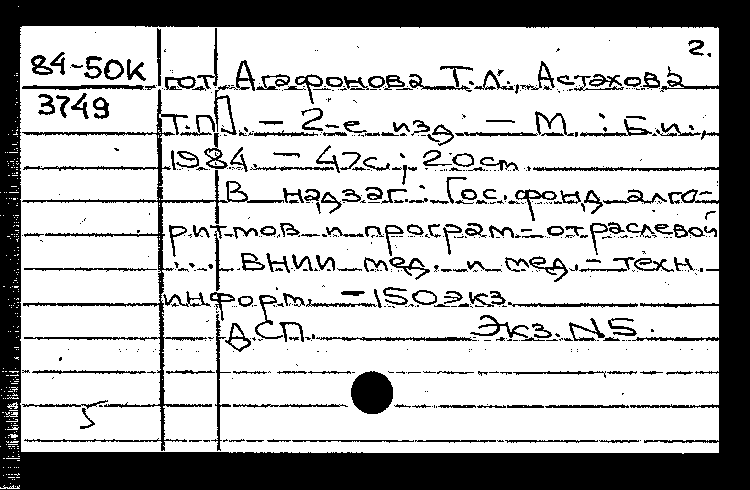 2.
84-50К
3749
гот. Агафонова Т.Л., Астахова
Т.П]. – 2-е изд. – М. : Б.и.,
1984. – 47с.; 20см.
В надзаг.: Гос.фонд алго-
ритмов и програм-отраслевой
... ВНИИ мед. и мед.-техн.
информ. – 150экз.
ДСП. Экз. N5.
5